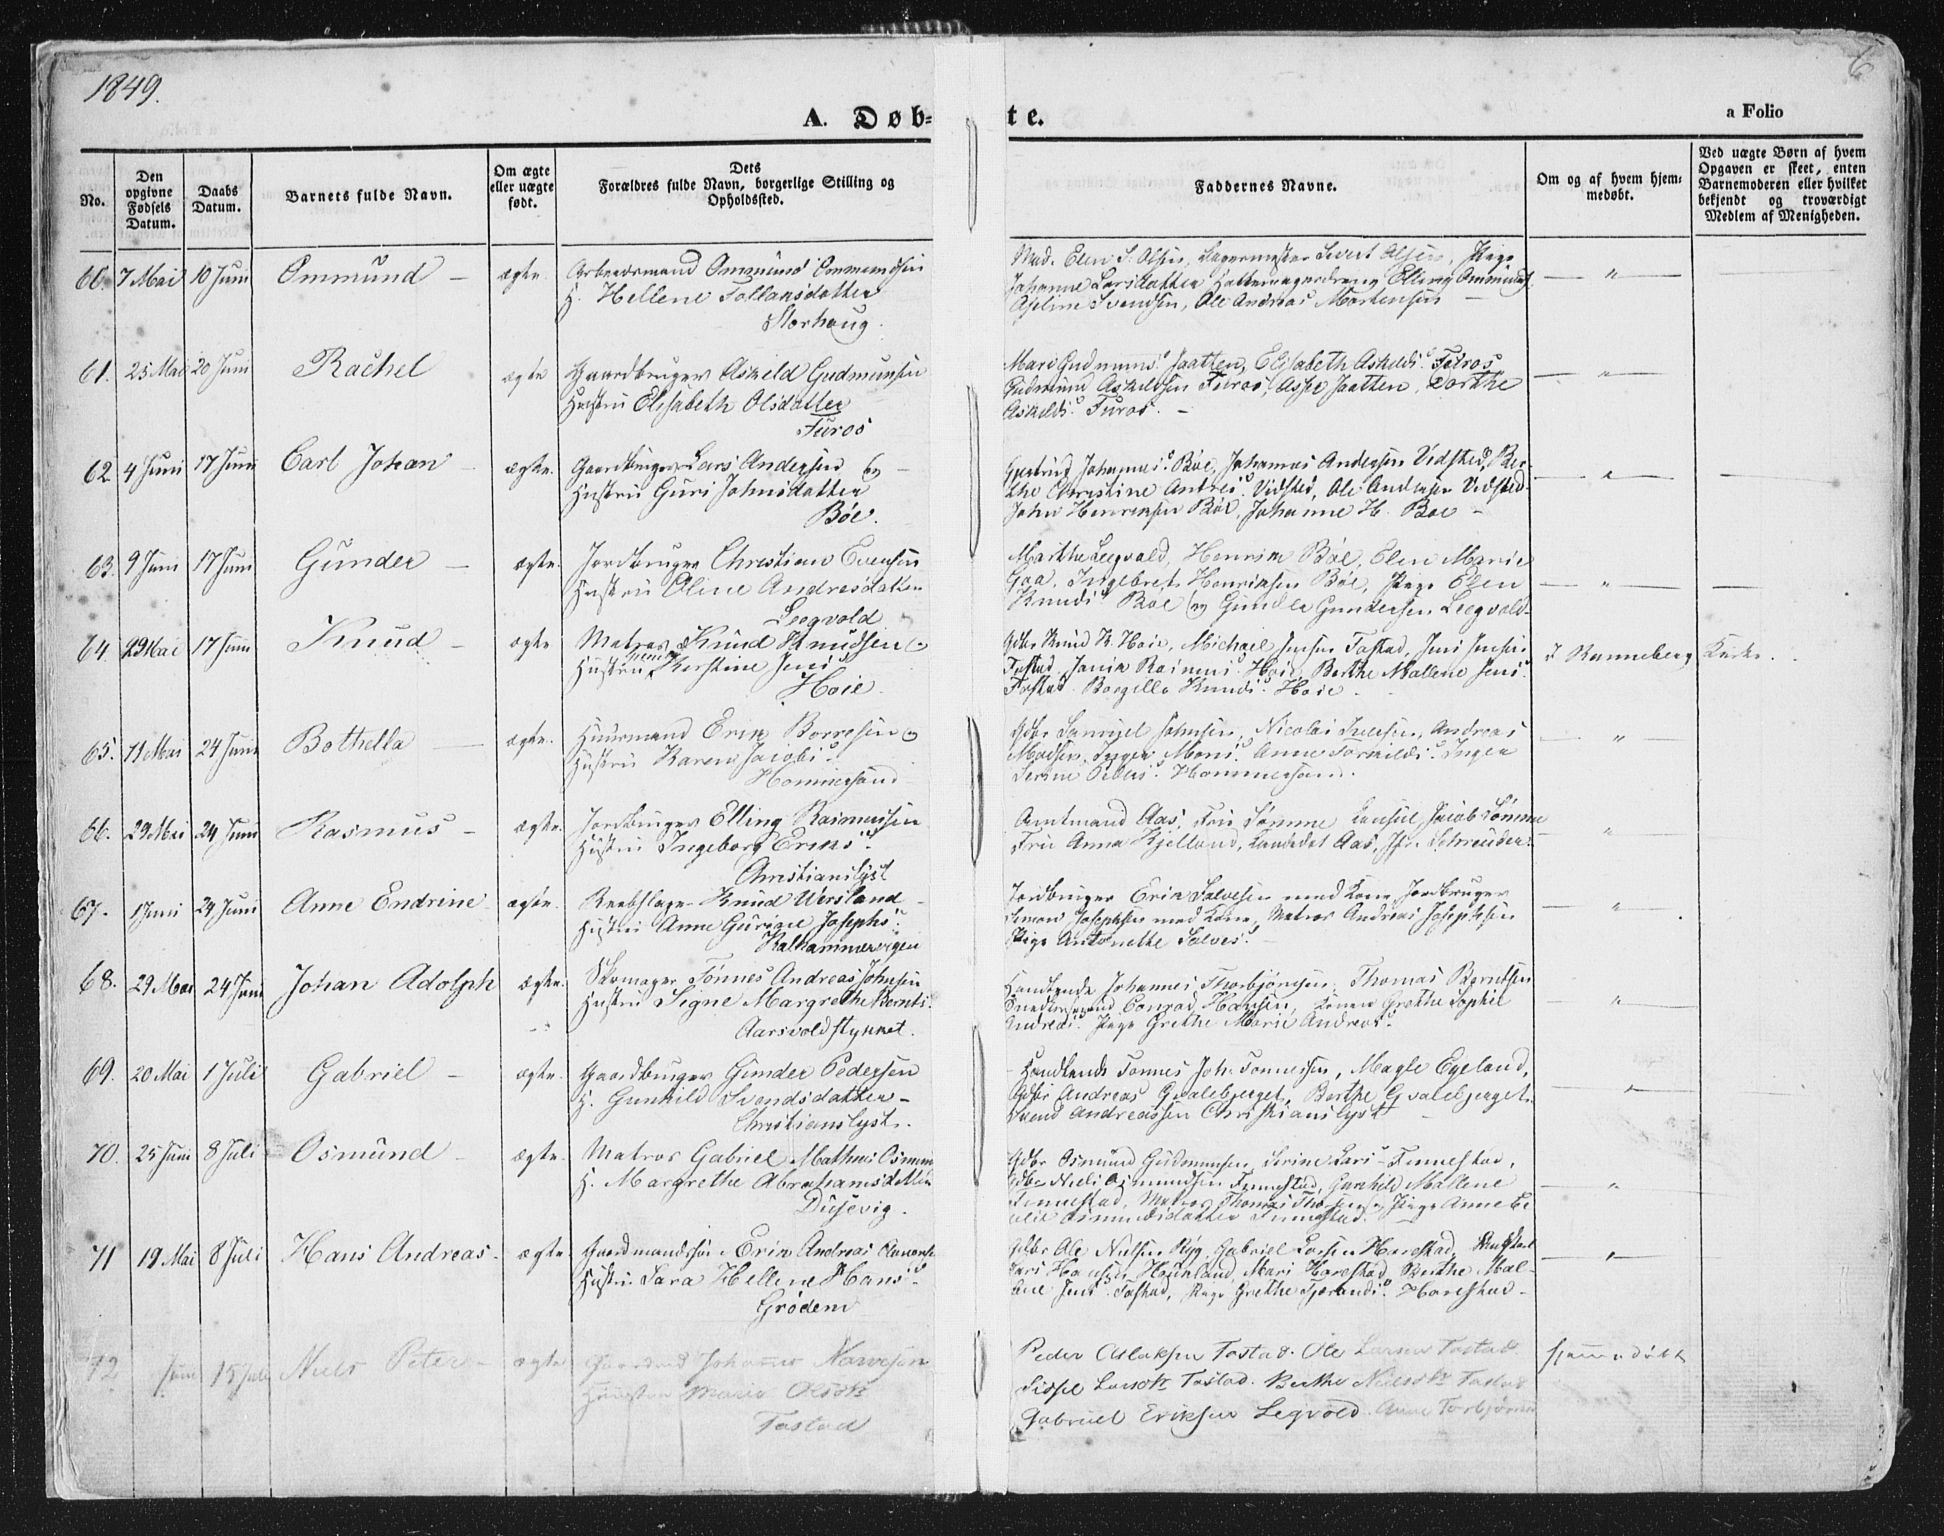 1849.
6
A. Døb-
te.
a Folio
No.
Den opgivne Fødsels Datum.
Daabs Datum.
Barnets fulde Navn.
Om ægte eller uægte født.
Dets Forældres fulde Navn, borgerlige Stilling og Opholdssted.
Faddernes Navne.
Om og af hvem hjem-
medøbt.
Ved uægte Børn af hvem
Opgaven er skeet, enten
Barnemoderen eller hvilket
bekjendt og troværdigt
Medlem af Menigheden.
60. 7 Mai 10 Juni Ommund – ægte. Arbeidsmand Ommund Ommundsen
H. Hellene Tollansdatter
Storhaug.
Mad. Elen S. Olsen, Lagermester Sivert Olsen, Pige
Johanne Larsdatter Elling Ommunds
Svendsen, Ole Andreas Mortensen
61. 25 Mai 20 Juni Rachel ægte Gaardbruger Askeld Gudmunsen
Hustru Elisabeth Olsdatter
Furos
Mari Gudmuns. Jaatten, Elisabeth Askelds. Furos
Gudmund Askeldsen Furos, Jaatten, Dorthe
Askelds. Furos. –
62. 4 Juni 17 Juni Carl Johan – ægte. Gaardbruger Lars Andersen og –
Hustru Guri Johnsdatter
Böe.
Johannes. Böe, Johannes Andersen Vidsted, Ber-
the Christine Andres. Vidsted, Ole Andersen Vidsted
John Henriksen Böe, Johanne H. Böe –
63. 9 Juni 17 Juni Gunder – ægte. Jordbruger Christian Evensen
Hustru Oline Andreasdatter
Leegvold
Marthe Leegvald, Henrik Böe, Elen Marie
Goa, Ingebret Henriksen Böe, Pige Elen
Knuds. Böe og Gunder Gundersen Leegvold–
64. 29 Mai 17 Juni Knud – ægte Matros Knud Knudsen og
Hustru Kirstine Jens.
Hoie.
Gdbr Knud K. Hoie, Michael Jensen Tastad, Jens Jensen
Tastad, Rasmus. Hoie, Berthe Mallene Jens.
Tastad. Borgille Knuds. Hoie –
I Ranneberg Kirke.
65. 11 Mai 24 Juni Bothella – ægte. Huusmand Erik Borresen og
Hustru Karen Jacobs.
Hommersand
Gdbr Samuel Johnsen, Nicolai Iversen, Andreas
Madsen, Inger Mons. Anne Torkilds. Inger
Serine Peders. Hommersand.
66. 29 Mai 24 Juni Rasmus – ægte. Jordbruger Elling Rasmussen
Hustru Ingeborg Eriks.
Christianslyst
Amtmand Aas, Fru Sömme Consul Jacob Sömme
Fru Anna Kjelland, Candidat Aas, Jfr. Schreuder.
67. 1 Juni 24 Juni Anne Endrine ægte. Reebslager Knud Wersland –
Hustru Anne Gurine Josephs.
Kalhammervigen
Jordbruger Erik Salvesen med Kone, Jordbruger
Simon Josephsen med Kone, Matros Andreas Josephsen
Pige Antonette Salves. –
68. 29 Mai 24 Juni Johan Adolph ægte. Skomager Tönnes Andreas Johnsen
Hustru Signe Margrethe Bernts.
Aarsvoldstykket.
Handlende Johannes Thorbjörnsen, Thomas Berntsen
Conrad Hansen, Konen Grethe Sophie
Andreas. Pige Grethe Marie Andreas.
69. 20 Mai 1 Juli Gabriel – ægte. Gaardbruger Gunder Pedersen
H. Gunhild Svendsdatter –
Christianslyst.
Handlende Tonnes Joh. Tonnessen, Magle Egeland,
Gdbr Andreas Gvalebjerget, Berthe Gvalebjerget.
Svend Andreassen Christianslyst
70. 25 Juni 8 Juli Osmund – ægte. Matros Gabriel Mathias Osmun
H. Margrethe Abrahamsdatter
Dusevig.
Gdbr Osmund Gudmunsen, Serine Lars– Finnestad,
Gdbr Niels Osmundsen Finnestad, Gunhild Mallene
Finnestad, Matros Thomas Pige Anne Ce
cilie Osmundsdatter Finnestad.
71 19 Mai 8 Juli Hans Andreas. ægte. Gaardmandssön Erik Andreas
Hustru Sara Hellene Hans.
Grödem
Gdbr Ole Nielsen Ryg, Gabriel Larsen Harestad,
Lars Hansen Mari Harestad, Berthe Mal-
lene Jens. Tastad, Pige Grethe Harestad –
72 Juni 15 Juli Niels Peter – ægte Johannes Narvesen
Maria Olsdr
Tastad
Peder Aslaksen Tastad. Ole Larsen Tastad.
Sidsel Larsdr Tastad. Berthe Nielsdr Tastad
Gabriel Eriksen Legvold. Anne Torbjörnsen
hjemmedöbt